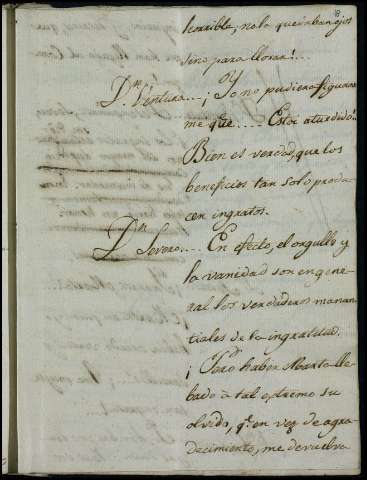 horrible, no la quedaban ojos
sino para llorar!...
Dn. Ventura.... ¡Yo no pudiera figurar
me que.... Estoi aturdido!!
Bien es verdad, que los
beneficios tan solo produ
cen ingratos.
Dn. Severo.... En efecto, el orgullo y
la vanidad son en gene
ral los verdaderos manan
tiales de la ingratitud.
¡Pero haber Marta lle
bado a tal extremo su
olvido, q.e en vez de agra
decimiento, me devuelva